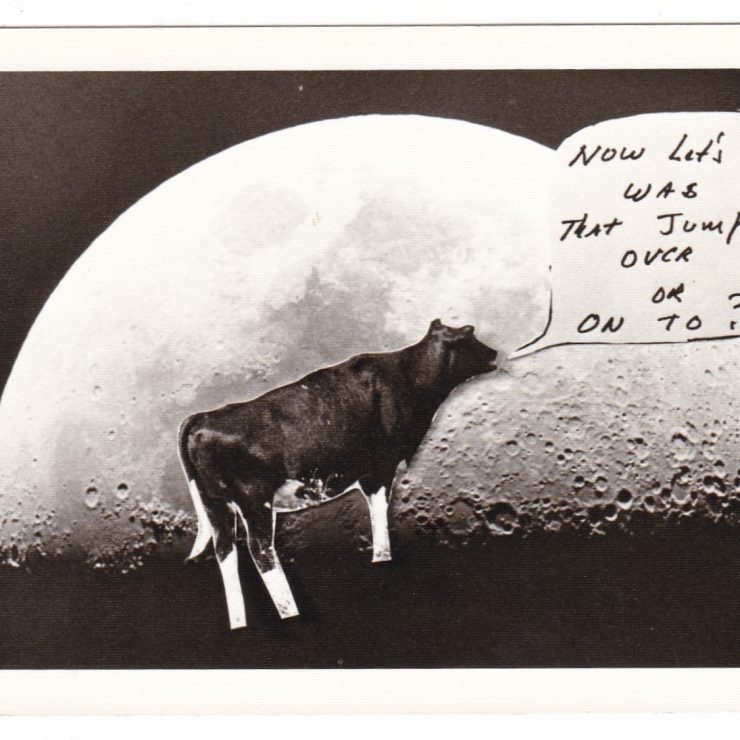 NOW Let's
WAS
THAT JUMP
OVER
OR
ON TO ?